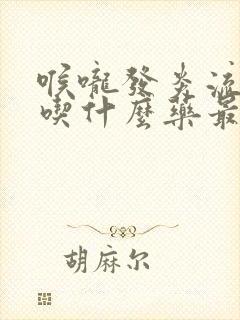 喉嚨發炎流
喫什麼藥最
胡麻尔